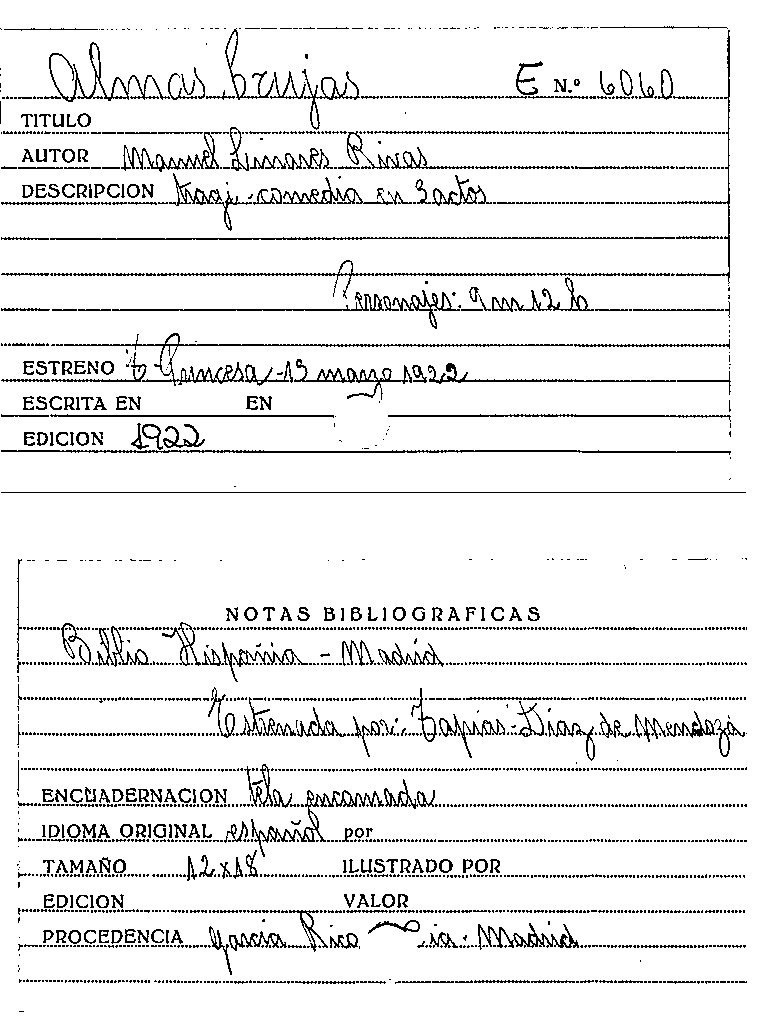 Almas brujas E N.º 6060
TITULO
AUTOR Manuel Linares Rivas
DESCRIPCION tragi-comedia en 3 actos
Personajes: 9 m 12 h
ESTRENO t-Princesa-13 marzo 1922
ESCRITA EN EN
EDICION 1922
NOTAS BIBLIOGRAFICAS
Biblio Hispania - Madrid
Estrenada por: Tapias-Diaz de Mendoza
ENCUADERNACION tela encarnada
IDIOMA ORIGINAL español por
TAMAÑO 12x18 ILUSTRADO POR
EDICION VALOR
PROCEDENCIA Garcia Rico ia-Madrid